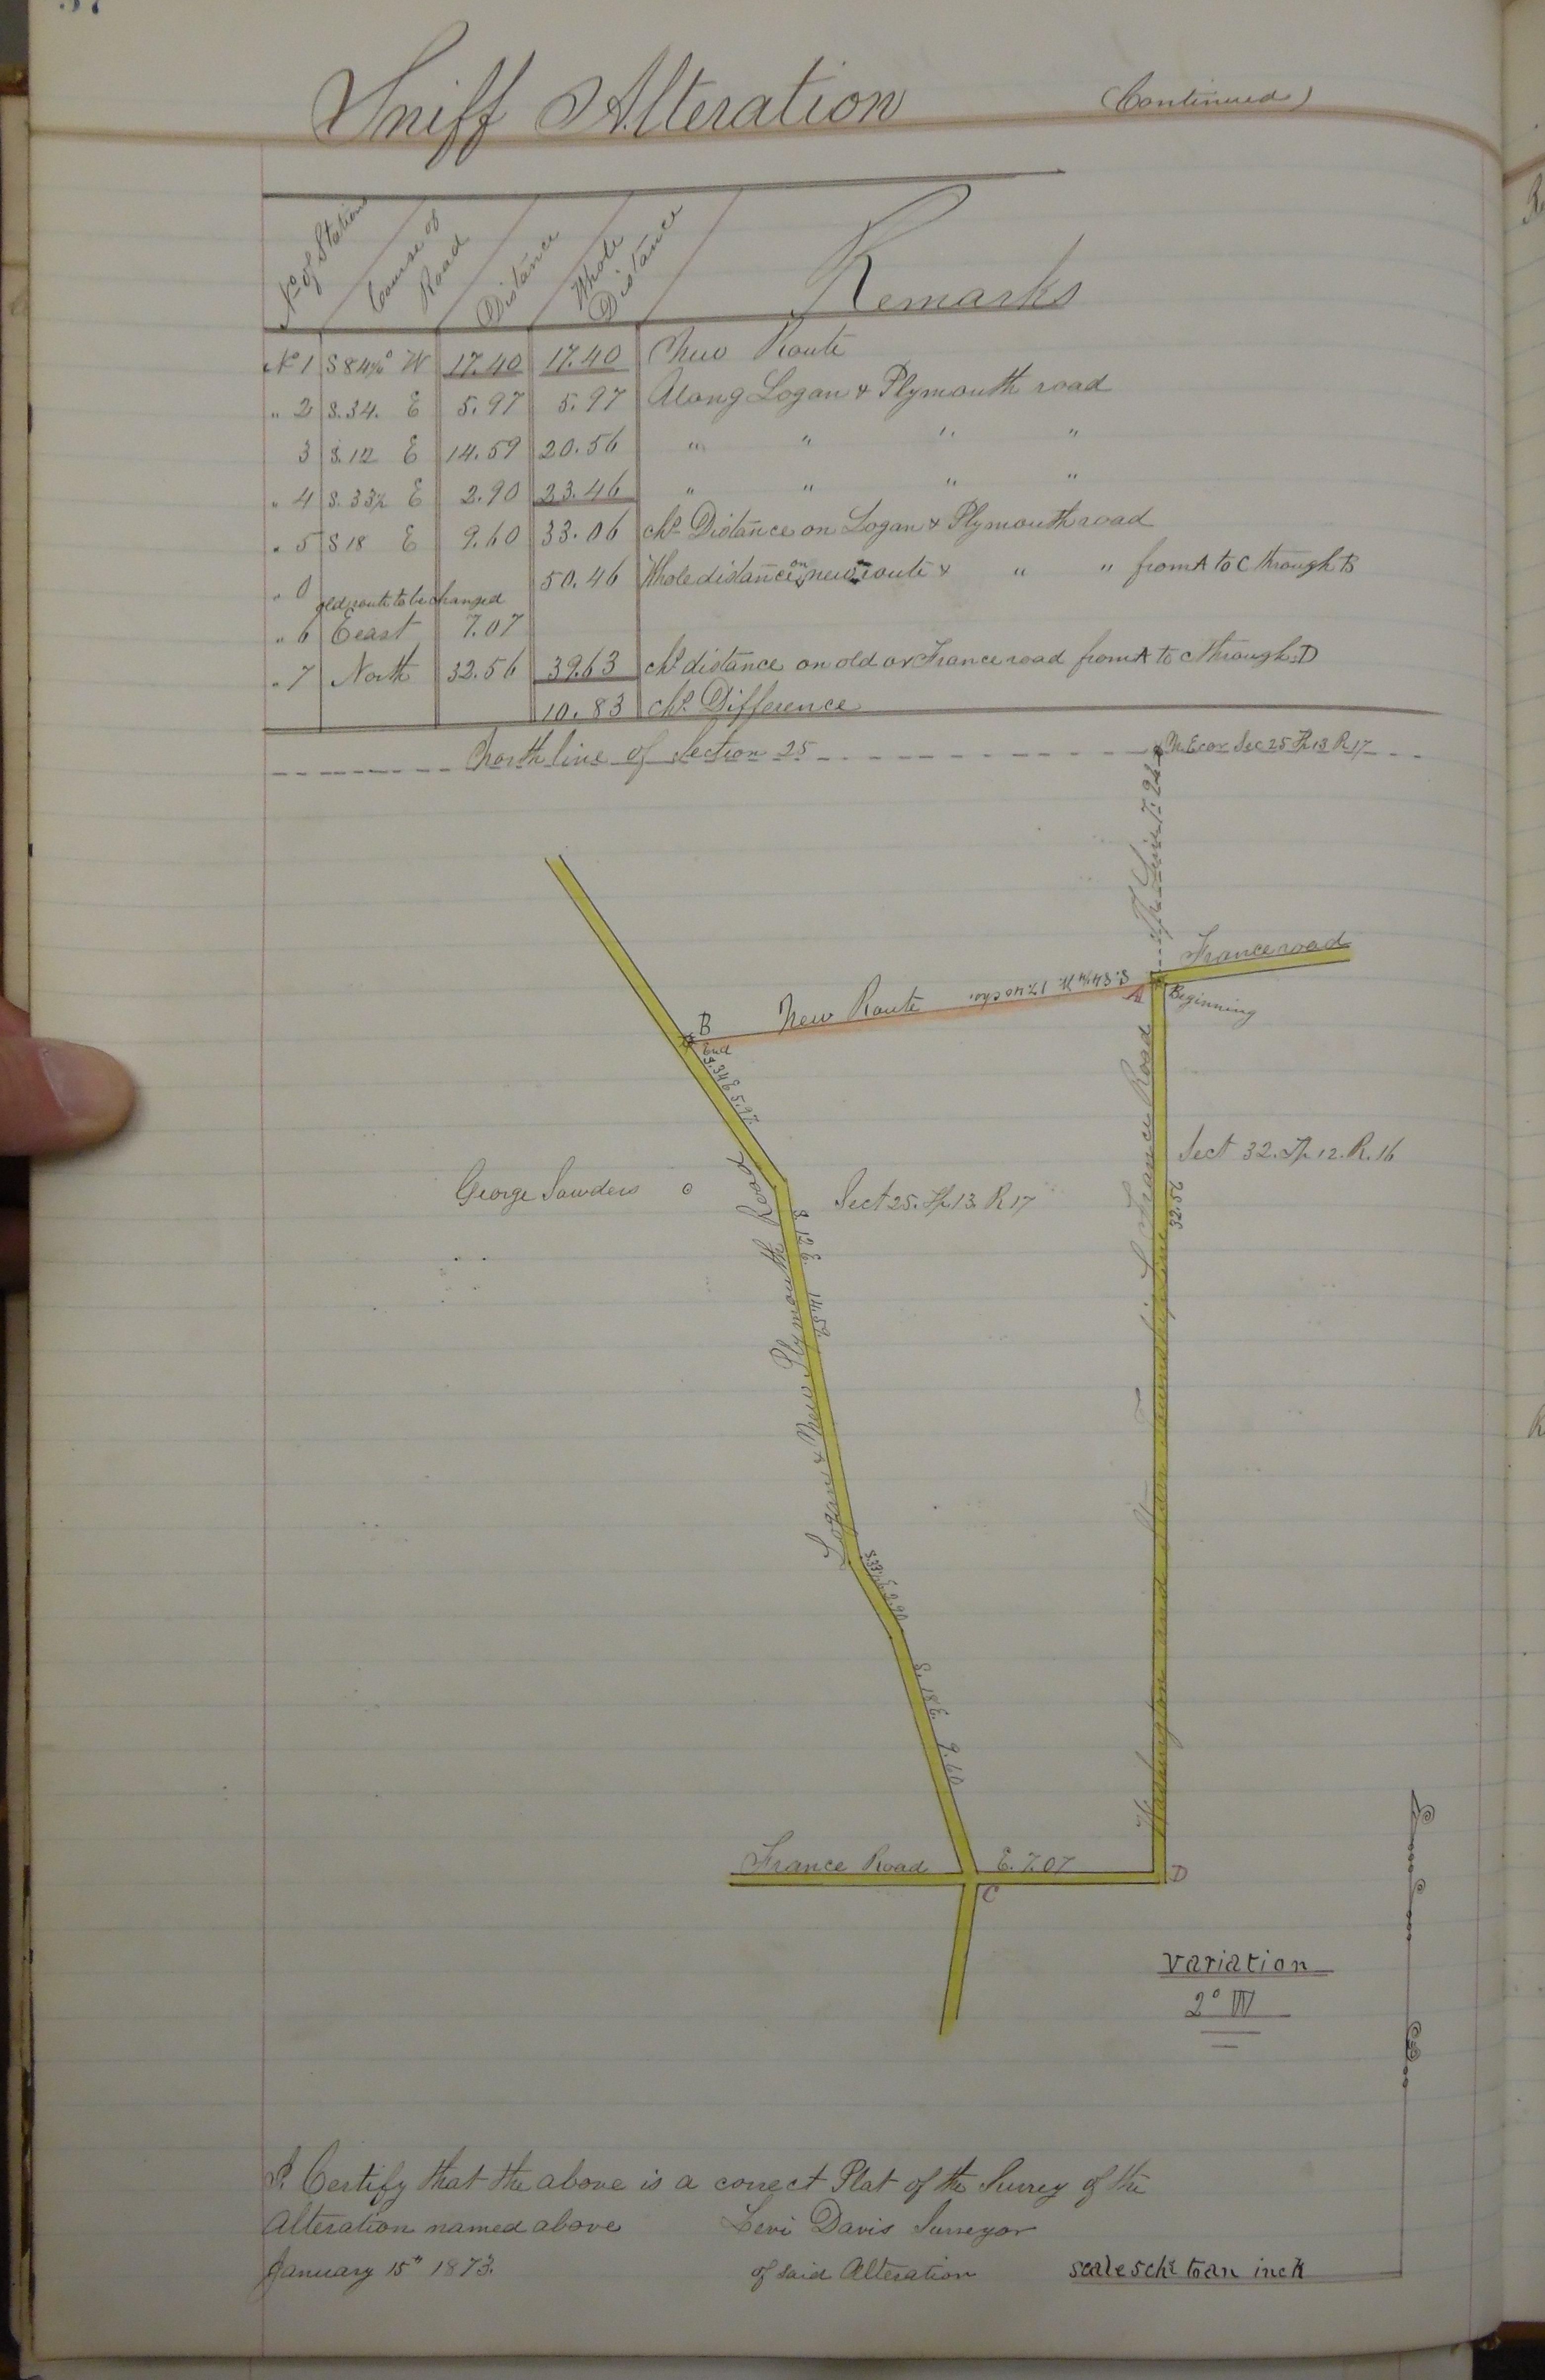 37
Sniff Alteration (Continued)
No of Station Course of Road Distance Whole Distance Remarks
No 1 S 84½° W 17.40 17.40 New Route
" 2 S. 34. E 5.97 5.97 Along Logan & Plymouth road
3 S. 12 E 14.59 20.56 " " " "
" 4 S. 33½ E 2.90 23.46 " " " "
" 5 S 18 E 9.60 33.06 chs Distance on Logan & Plymouth road
" 0 50.46 Whole distance on new route & " " from A to C through B
old route to be changed
" 6 East 7.07
" 7 North 32.56 39.63 chs distance on old or France road from A to C through D
10.83 chs Difference
North line of Section 25
N. E cor Sec 25 Tp 13 R 17
Tp Line 7.24
France road
S. 84½ W. 17.40 chs.
New Route
A
Beginning
B
End
S. 34 E 5.97
George Sawders
Sect 25. Tp. 13. R 17
Sect 32. Tp. 12. R. 16
S 12 E. 14.59
Logan & New Plymouth Road
32.56
Washington and Starr Township Line & France Road
S. 33½ E 2.90
S. 18 E. 9.60
France Road
E. 7.07
C
D
variation
2° W
I. Certify that the above is a correct Plat of the Survey of the
Alteration named above Levi Davis Surveyor
January 15th 1873. of said Alteration
scale 5 chs to an inch